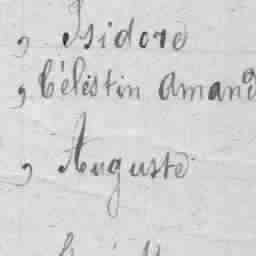 , Isidore
, Célestin Amand
, Auguste